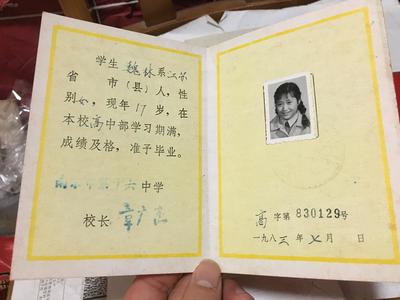 学生魏林系江苏
省 市(县)人,性
别女,现年17岁,在
本校高中部学习期满,
成绩及格,准予毕业。
南京市第十六中学
校长 章广志
高 字第830129号
一九八三年七月 日